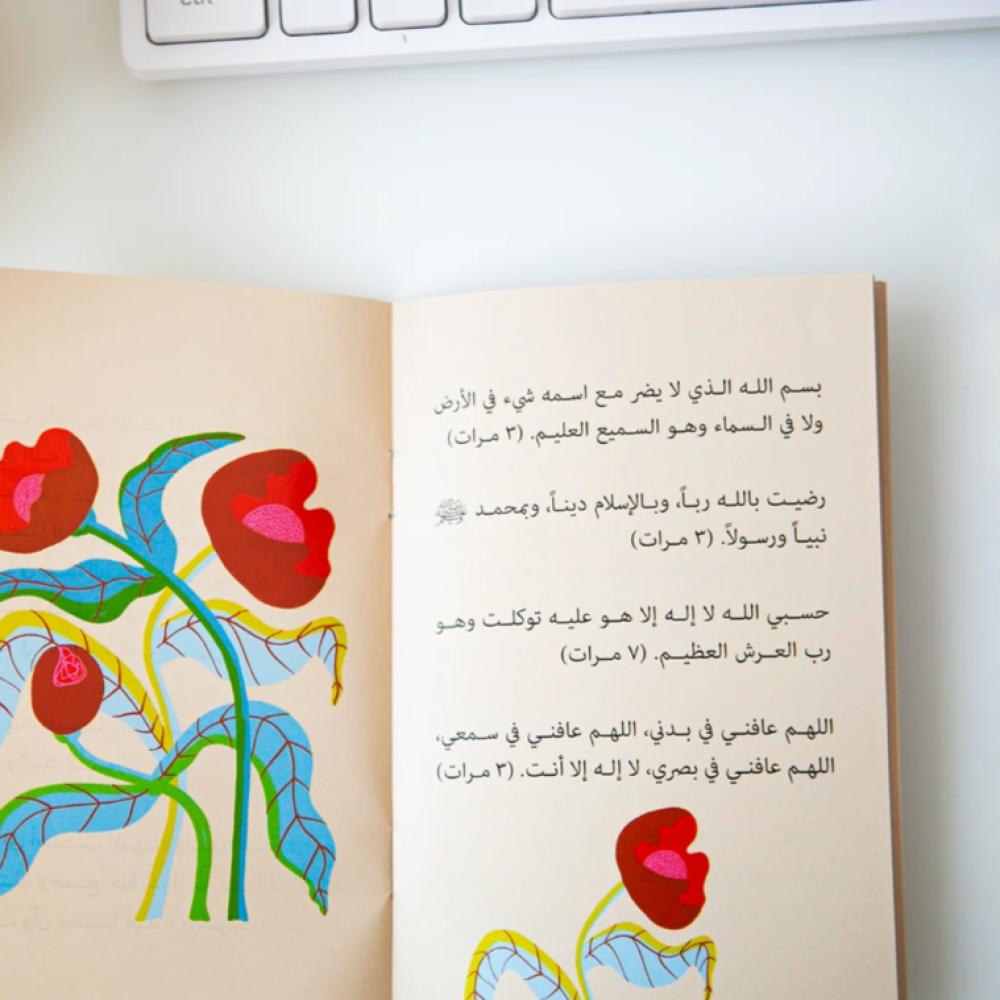 Ctrl
بسم الله الذي لا يضر مع اسمه شيء في الأرض
ولا في السماء وهو السميع العليم. (٣ مرات)
رضيت بالله رباً، وبالإسلام ديناً، وبمحمد ﷺ
نبياً ورسولاً. (٣ مرات)
حسبي الله لا إله إلا هو عليه توكلت وهو
رب العرش العظيم. (٧ مرات)
اللهم عافني في بدني، اللهم عافني في سمعي،
اللهم عافني في بصري، لا إله إلا أنت. (٣ مرات)